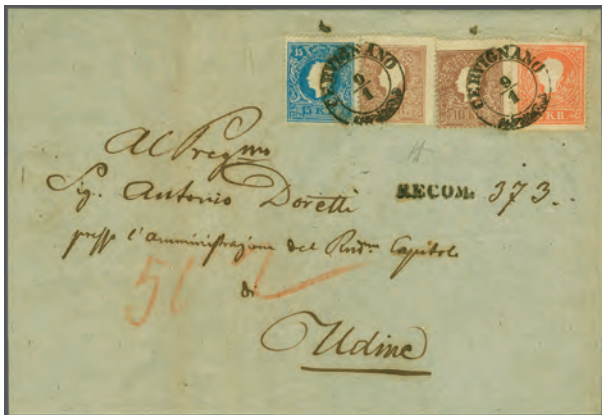 15 KR.
10 KR.
KR.
CERVIGNANO
9/1
CERVIGNANO
9/1
Al Pregmo
Sig. Antonio Doretti
RECOM. 373.
presso l'amministrazione del Rndm Capitolo
di
Udine